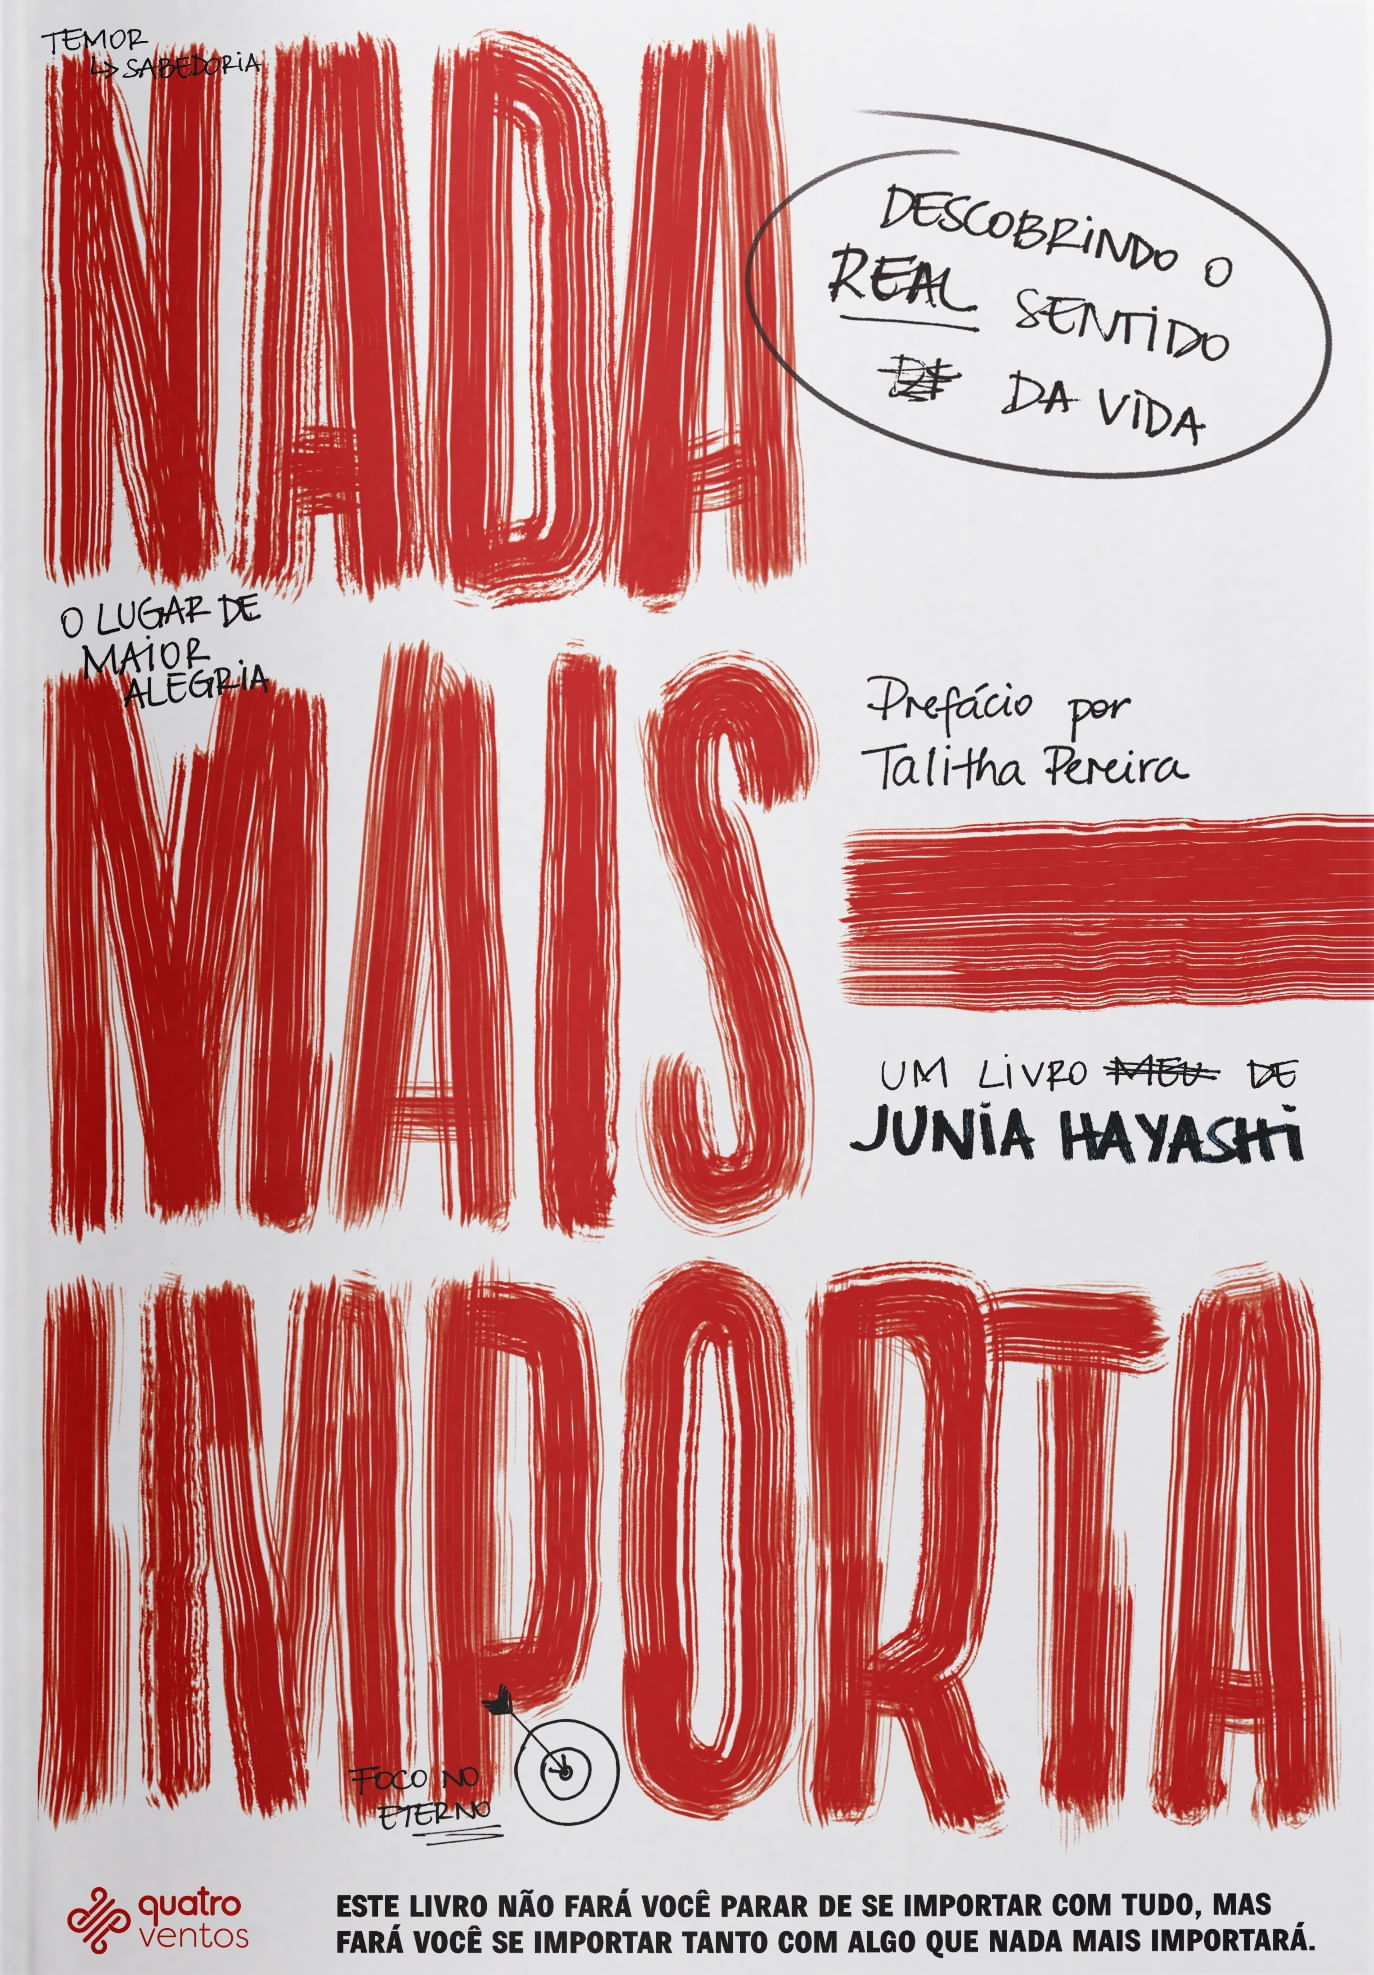 TEMOR
↳ SABEDORIA
NADA
DESCOBRINDO O
REAL SENTIDO
DA VIDA
O LUGAR DE
MAIOR
ALEGRIA
MAIS
Prefácio por
Talitha Pereira
UM LIVRO MEU DE
JUNIA HAYASHI
IMPORTA
FOCO NO
ETERNO
quatro
ventos
ESTE LIVRO NÃO FARÁ VOCÊ PARAR DE SE IMPORTAR COM TUDO, MAS
FARÁ VOCÊ SE IMPORTAR TANTO COM ALGO QUE NADA MAIS IMPORTARÁ.